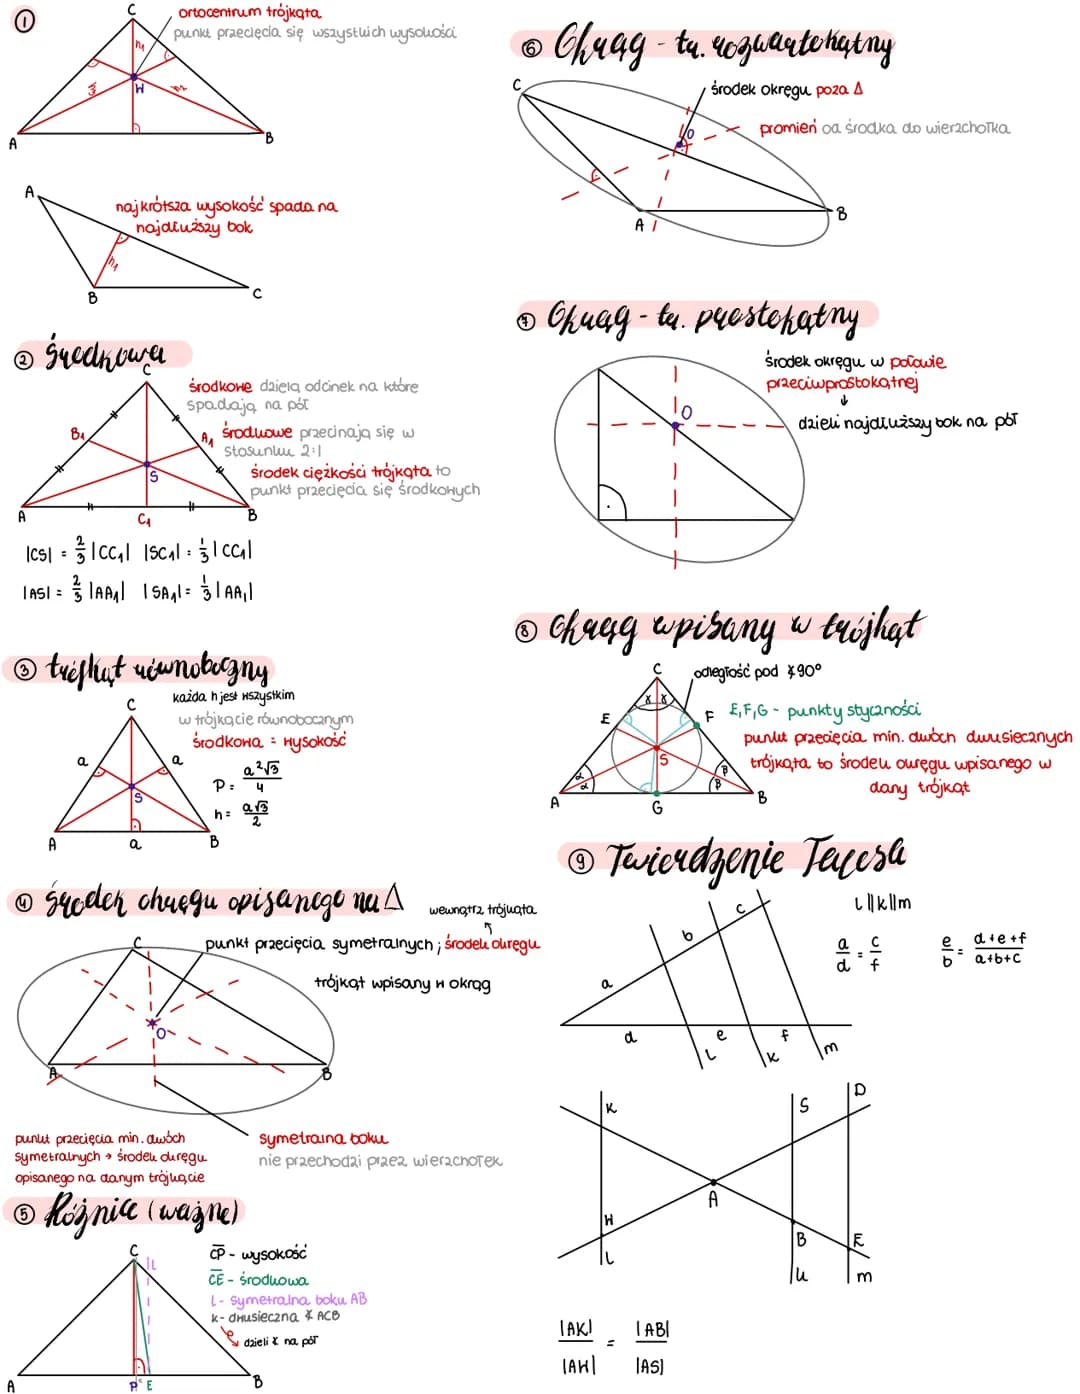 ①
C
ortocentrum trójkąta
punkt przecięcia się wszystkich wysokości
h₁
h₂
h₃
H
A
B
A
najkrótsza wysokość spada na
najdłuższy bok
h₁
B
C
② Środkowa
C
środkowe dzielą odcinek na które
spadają na pół
B₁
A₁
środkowe przecinają się w
stosunku 2:1
środek ciężkości trójkąta to
punkt przecięcia się środkowych
S
A
C₁
B
|CS| = 2/3 |CC₁| |SC₁| = 1/3 |CC₁|
|AS| = 2/3 |AA₁| |SA₁| = 1/3 |AA₁|
③ trójkąt równoboczny
każda h jest wszystkim
C
w trójkącie równobocznym
środkowa = wysokość
a
a
P = a²√3/4
S
h = a√3/2
A
a
B
④ Środek okręgu opisanego na Δ
wewnątrz trójkąta
C
punkt przecięcia symetralnych ; środek okręgu
trójkąt wpisany w okrąg
O
A
B
punkt przecięcia min. dwóch
symetralnych → środek okręgu
opisanego na danym trójkącie
symetralna boku
nie przechodzi przez wierzchołek
⑤ Różnice (ważne)
C
l
CP - wysokość
CE - środkowa
l - symetralna boku AB
k - dwusieczna ∢ ACB
dzieli ∢ na pół
A
P
E
B
⑥ Okrąg - tr. rozwartokątny
C
środek okręgu poza Δ
O
promień od środka do wierzchołka
A
B
⑦ Okrąg - tr. prostokątny
środek okręgu w połowie
przeciwprostokątnej
↓
O
dzieli najdłuższy bok na pół
⑧ Okrąg wpisany w trójkąt
C
odległość pod ∢90°
γ γ
E
F
E,F,G - punkty styczności
punkt przecięcia min. dwóch dwusiecznych
S
trójkąta to środek okręgu wpisanego w
dany trójkąt
α
α
β
β
A
G
B
⑨ Twierdzenie Talesa
l||k||m
c
b
a
a/d = c/f
e/b = d+e+f/a+b+c
d
e
f
l
k
m
K
S
D
A
H
B
E
l
k
m
|AK|/|AH| = |AB|/|AS|